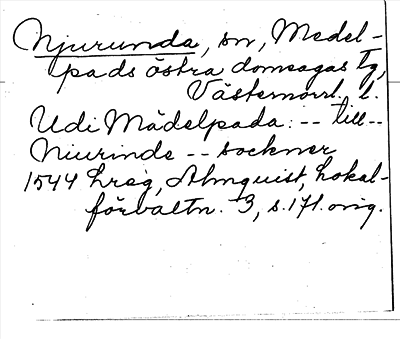 Njurunda, sn, Medel-
pads östra domsagas tg,
Västernorrl. l.
Udi Mädelpada: -- till --
Niurinde -- sockner
1544 hreg, Almquist, Lokal-
förvaltn. 3, s. 171. orig.